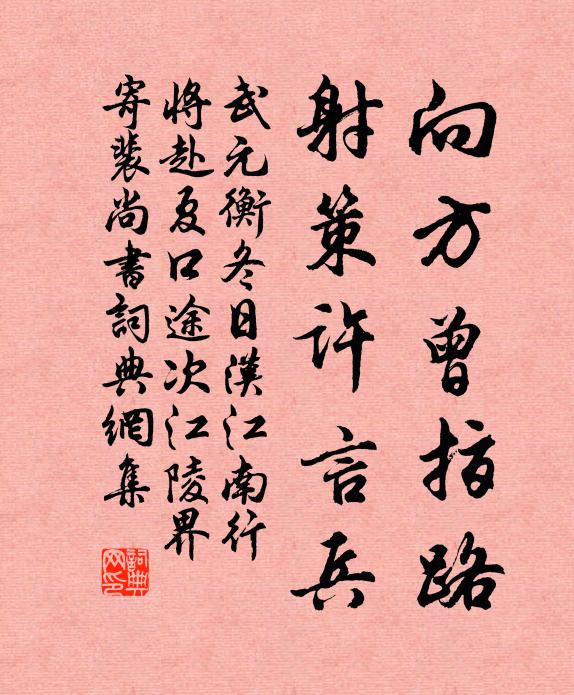 向方曾指路
射策許言兵
武元衡冬日漢江南行
將赴夏口途次江陵界
寄裴尚書詞典網集
詞典
网印